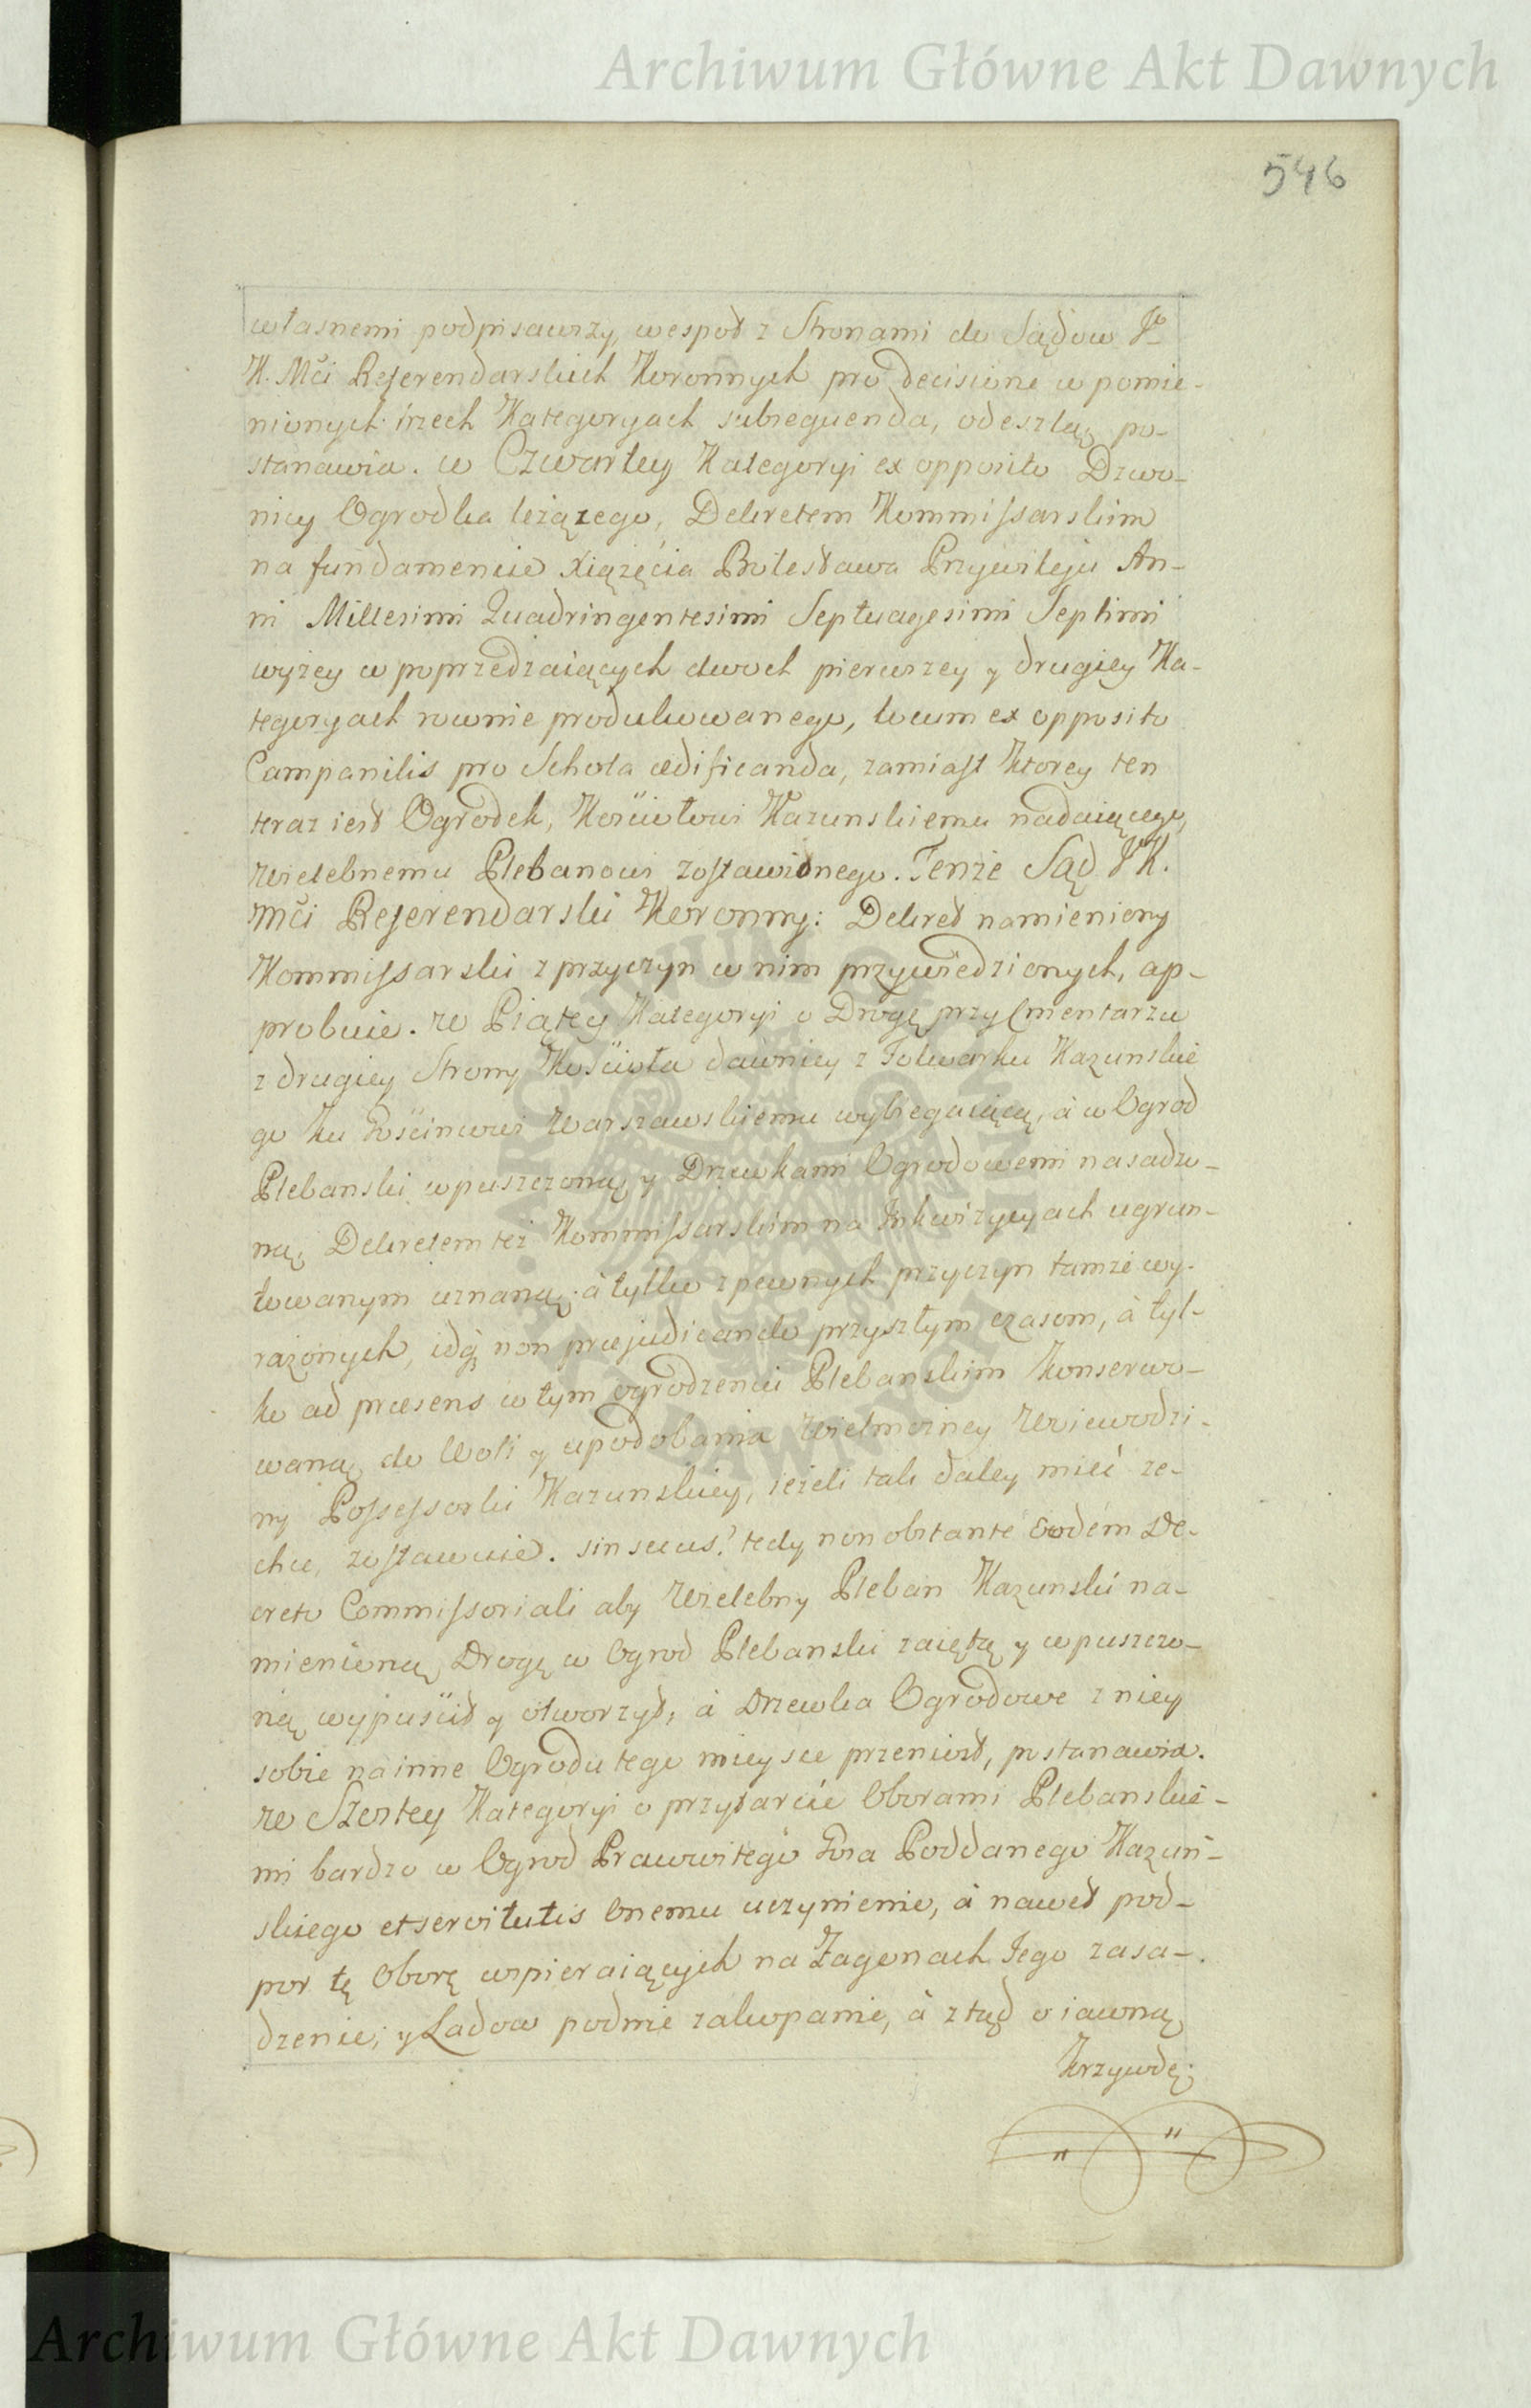 Archiwum Główne Akt Dawnych
546
własnemi podpisawszy, wespoł z Stronami do Sądow Jo
K. Mći Referendarskich Koronnych pro decisione w pomie-
nionych trzech Kategoryach subsequenda, odeszlą, po-
stanawia. w Czwartey Kategoryi ex opposito Dzwo-
nicy Ogrodka leżącego, Dekretem Kommissarskim
na fundamencie Xiążęcia Bolesława Przywileju An-
ni Millesimi Quadringentesimi Septuagesimi Septimi
wyżey w poprzedzaiących dwoch pierwszey y drugiey Ka-
tegoryach rownie produkowanego, locum ex opposito
Campanilis pro Schola ædificanda, zamiast Ktorey ten
teraz iest Ogrodek, Kościołowi Kazunskiemu nadaiącego,
Wielebnemu Plebanowi zostawionego. Tenże Sąd J K.
Mći Referendarski Koronny: Dekret namieniony
Kommissarski z przyczyn w nim przywiedzionych, ap-
probuie. w Piątey Kategoryi o Drogę przy Cmentarzu
z drugiey Strony Kościoła dawniey z Folwarku Kazunskie
go ku Gościncowi Warszawskiemu wybiegaiącą, à w Ogrod
Plebanski wpuszczoną y Drzewkami Ogrodowemi nasadzo-
ną, Dekretem też Kommissarskim na Inkwizycyach ugrun-
towanym uznaną; à tylko z pewnych przyczyn tamże wy-
rażonych, idq3 non præjudicando przyszłym czasom, à tyl-
ko ad præsens w tym ogrodzeniu Plebanskim Konserwo-
waną, do Woli y upodobania Wielmożney Woiewodzi-
ny Possessorki Kazunskiey, ieżeli tak daley mieć ze-
chce, zostawuie. sin secus? tedy non obstante eodém De-
creto Commissoriali aby Wielebny Pleban Kazunski na-
mienioną Drogę w Ogrod Plebanski zaiętą y wpuszczo-
ną wypuścił y otworzył, à Drzewka Ogrodowe z niey
sobie na inne Ogrodu tego mieysce przeniosł, postanawia.
w Szostey Kategoryi o przyparcie Oborami Plebanskie-
mi bardzo w Ogrod Prawowitego Poddanego Kazuń-
skiego et servitutis Onemu uczynienie, à nawet pod-
por tę Oborę wspieraiących na Zagonach Jego zasa-
dzenie, y Ladow podnie zakopanie, à ztąd o iawną
Krzywdę;
Archiwum Główne Akt Dawnych